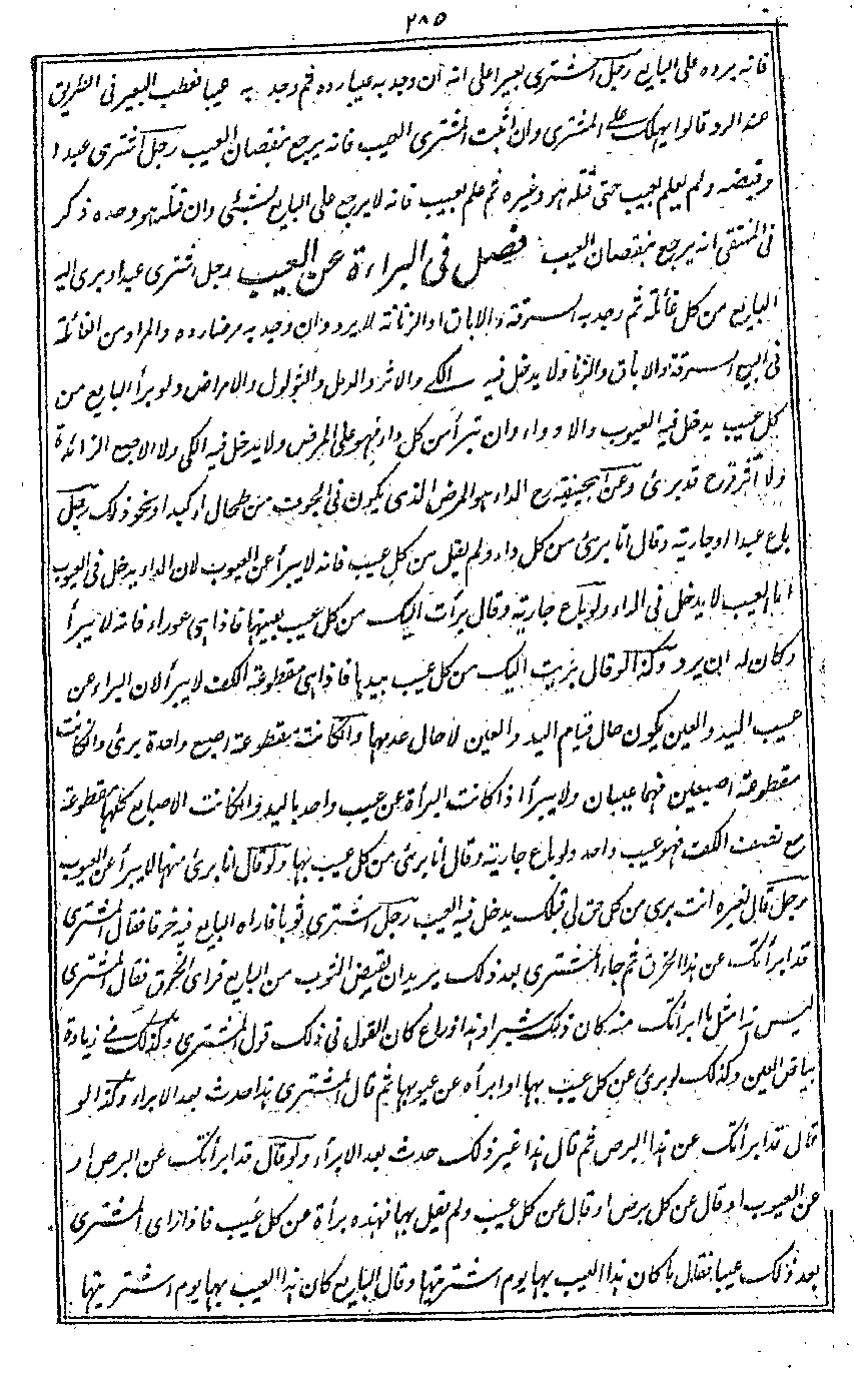 ٢٨٥
فانه يرده على البايع رجل اشترى بعيرا على انه ان وجد به عيبا رده ثم وجد به عيبا فعطب البعير فى الطريق
عند الرد قالوا يهلك على المشترى وان اثبت المشترى العيب فانه يرجع بنقصان العيب رجل اشترى عبدا
وقبضه ولم يعلم بعيب حتى قتله هو وغيره ثم علم بعيب فانه لا يرجع على البايع بشئ وان قتله هو وحده ذكر
فى المنتقى انه يرجع بنقصان العيب فصل فى البراءة عن العيب رجل اشترى عبدا وبرى اليه
البايع من كل غائلة ثم وجد به السرقة والاباق او الزنا فانه لا يرد وان وجد به مرضا رده والمراد من الغائلة
فى البيع السرقة والاباق والزنا ولا يدخل فيه الكى والاثر والدمل والثولول والامراض ولو برأ البايع من
كل عيب يدخل فيه العيوب والادواء وان تبرأ من كل داء فهو على المرض ولا يدخل فيه الكى ولا الاصبع الزائدة
ولا اثر قرح قد برئ وعن ابيحنيفة رح الداء هو المرض الذى يكون فى الجوف من طحال او كبد او نحو ذلك رجل
باع عبدا او جارية وقال انا برئ من كل داء ولم يقل من كل عيب فانه لا يبرأ عن العيوب لان الداء يدخل فى العيوب
اما العيب لا يدخل فى الداء ولو باع جارية وقال برأت اليك من كل عيب بعينها فاذا هى عوراء فانه لا يبرأ
وكان له ان يرد وكذا لو قال برئت اليك من كل عيب بيدها فاذا هى مقطوعة الكف لا يبرأ لان البراء عن
عيب اليد والعين يكون حال قيام اليد والعين لا حال عدمها وانكانت مقطوعة اصبع واحدة برئ وانكانت
مقطوعة اصبعين فهما عيبان ولا يبرأ اذا كانت البرأة عن عيب واحد باليد وانكانت الاصابع كلها مقطوعة
مع نصف الكف فهو عيب واحد ولو باع جارية وقال انا برئ من كل عيب بها ولو قال انا برئ منها لا يبرأ عن العيوب
رجل قال لغيره انت برى من كل حق لى قبلك يدخل فيه العيب رجل اشترى ثوبا فاراه البايع فيه خرقا فقال المشترى
قد ابرأتك عن هذا الخرق ثم جاء المشترى بعد ذلك يريد ان يقبض الثوب من البايع فراى الخرق فقال المشترى
ليس هذا مثل ما ابرأتك منه كان ذلك شبرا وهذا ذراع كان القول فى ذلك قول المشترى وكذلك فى زيادة
بياض العين وكذلك لو برئ عن كل عيب بها او ابرأه عن عيوبها ثم قال المشترى هذا حدث بعد الابراء وكذا لو
قال قد ابرأتك عن هذا البرص ثم قال هذا غير ذلك حدث بعد الابراء ولو قال قد ابرأتك عن البرص او
عن العيوب او قال عن كل برص او قال عن كل عيب ولم يقل بها فهذه برأة عن كل عيب فاذا راى المشترى
بعد ذلك عيبا فقال ما كان هذا العيب بها يوم اشتريتها وقال البايع كان هذا العيب بها يوم اشتريتها